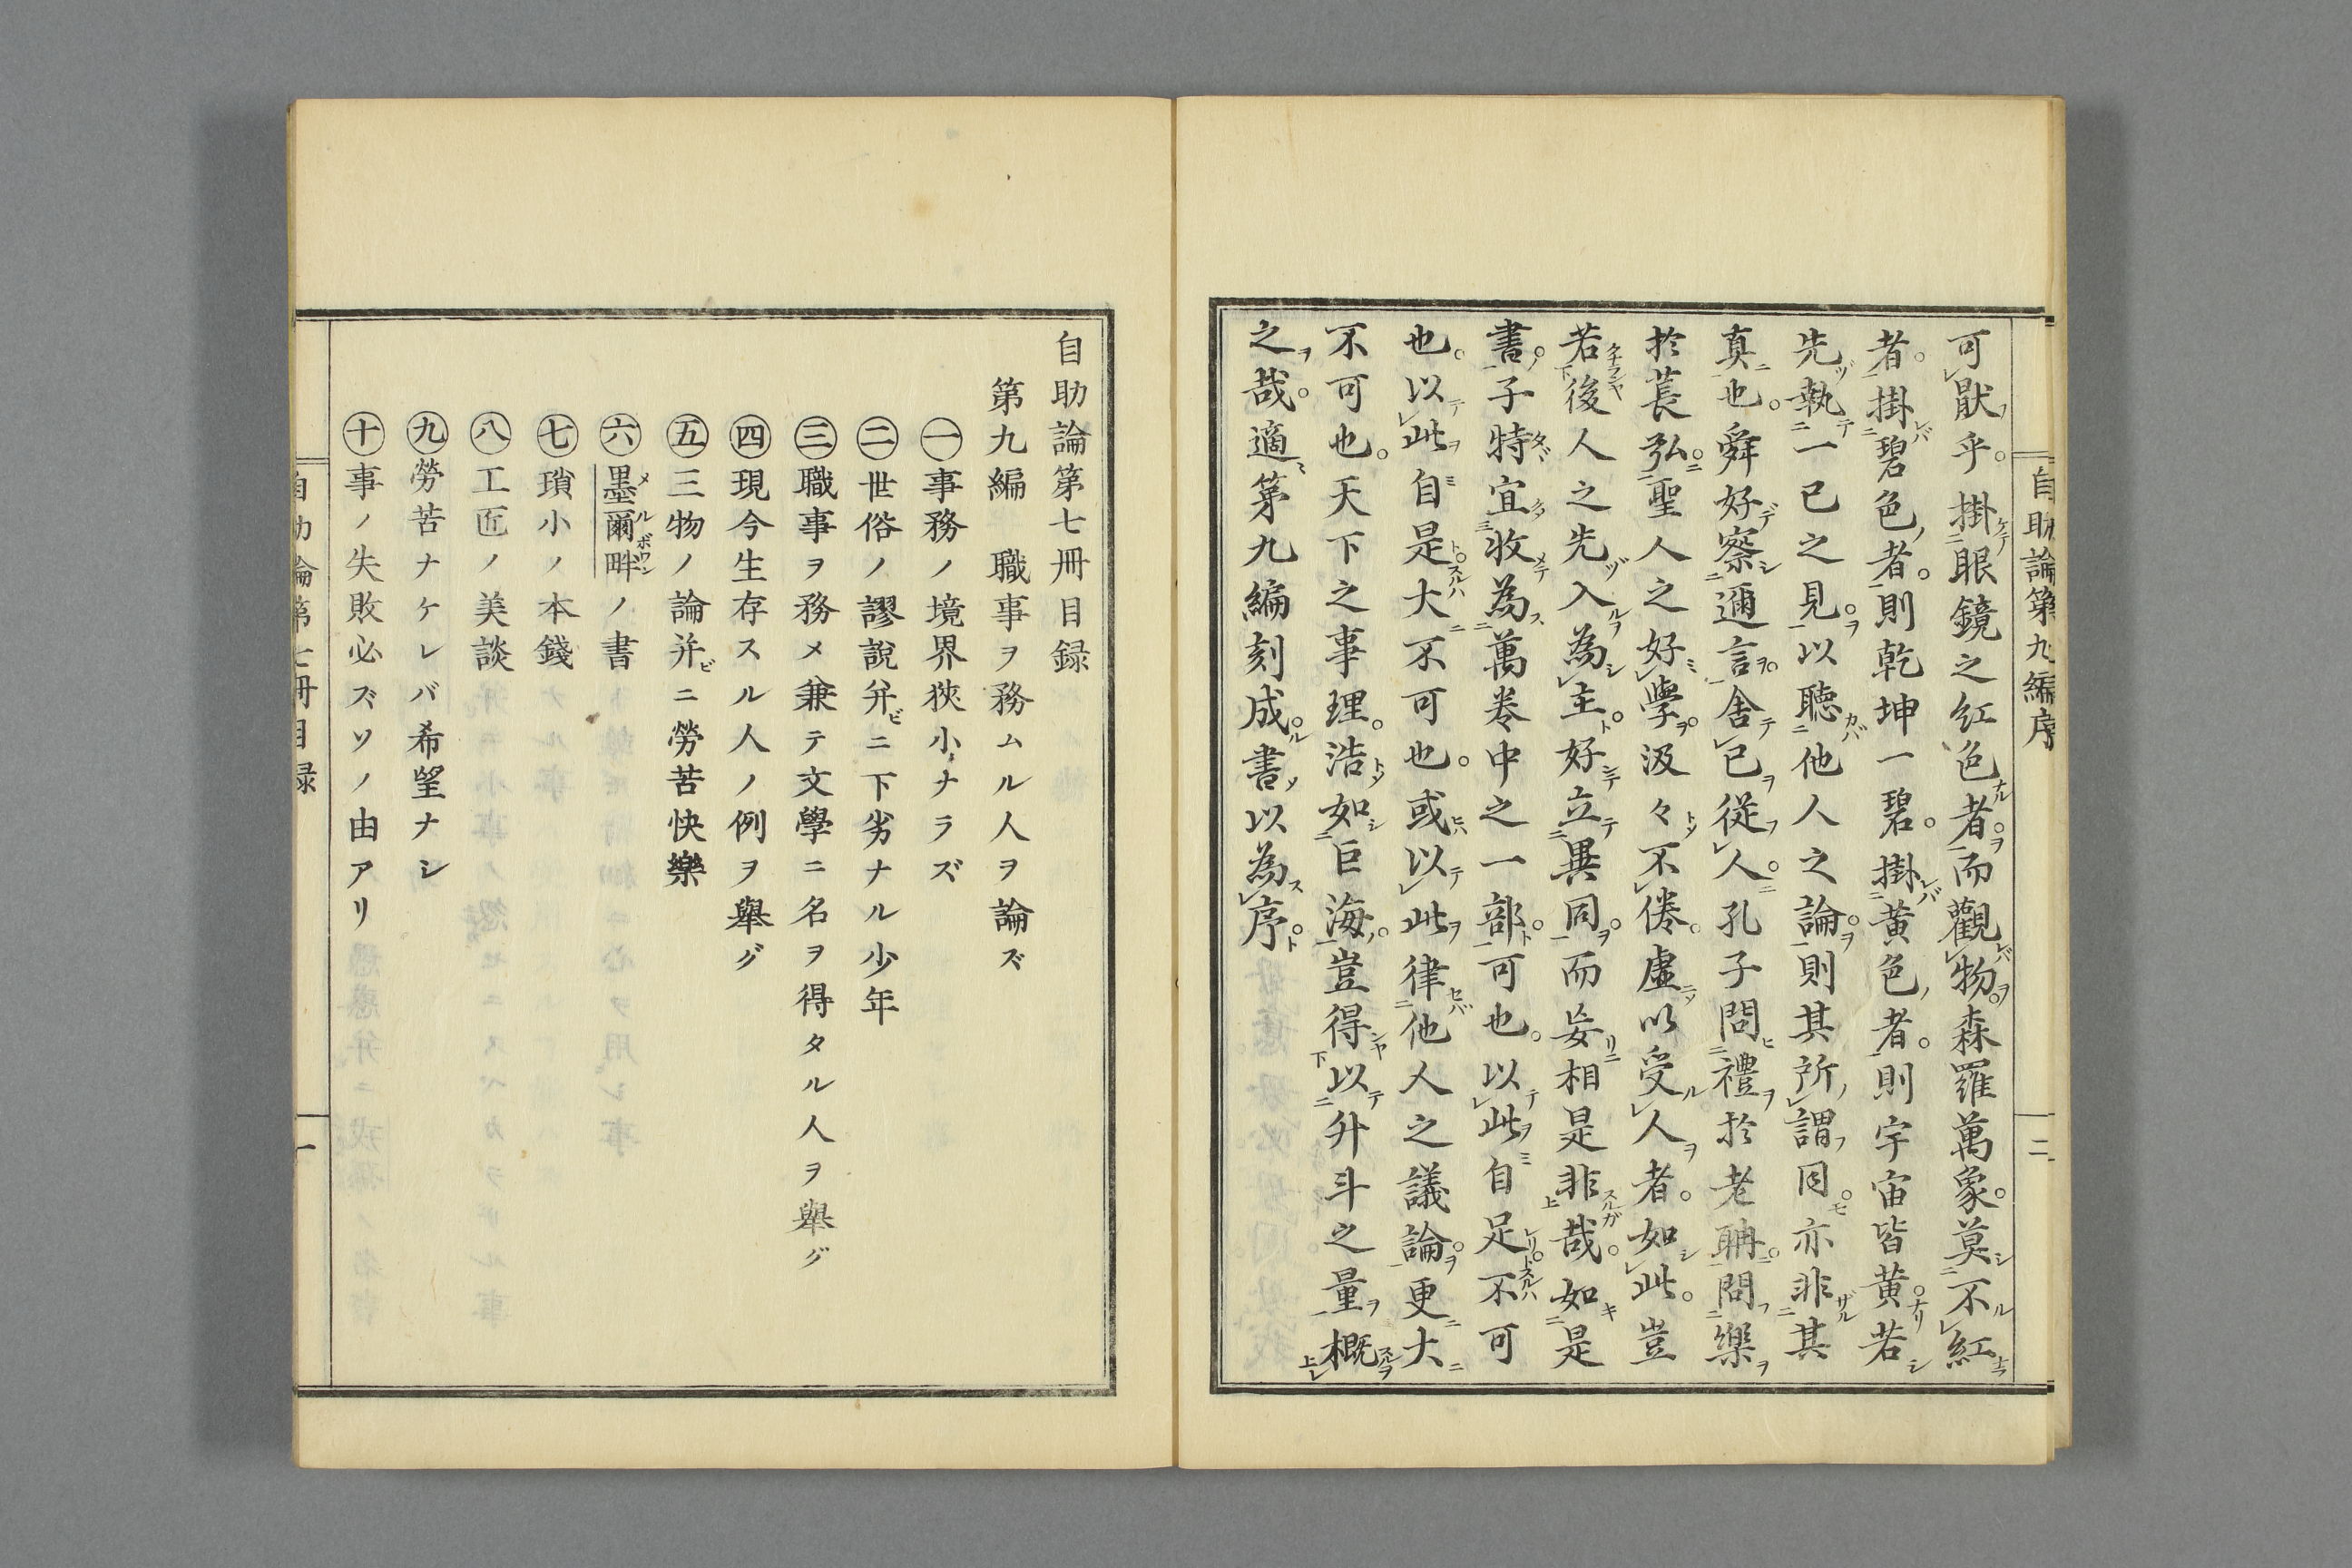 自助論第九編序
二
可厭乎。掛眼鏡之紅色者。而觀物。森羅萬象。莫不紅
者。掛碧色者。則乾坤一碧。掛黄色者。則宇宙皆黄。若
先執一己之見。以聽他人之論。則其所謂同。亦非其
真也。舜好察邇言。舍己從人。孔子問禮於老聃。問樂
於萇弘。聖人之好學。汲々不倦。虚以受人者。如此。豈
若後人之先入為主。好立異同。而妄相是非哉。如是
書。子特宜收為萬卷中之一部。可也。以此自足。不可
也。以此自是。大不可也。或以此律他人之議論。更大
不可也。天下之事理。浩如巨海。豈得以升斗之量概
之哉。適第九編刻成。書以為序。
自助論第七冊目録
第九編 職事ヲ務ムル人ヲ論ズ
㊀事務ノ境界狹小ナラズ
㊁世俗ノ謬說并ビニ下劣ナル少年
㊂職事ヲ務メ兼テ文學ニ名ヲ得タル人ヲ舉グ
㊃現今生存スル人ノ例ヲ舉グ
㊄三物ノ論并ビニ勞苦快樂
㊅墨爾畔ノ書
㊆瑣小ノ本錢
㊇工匠ノ美談
㊈勞苦ナケレバ希望ナシ
㊉事ノ失敗必ズソノ由アリ
自助論第七冊目録
一